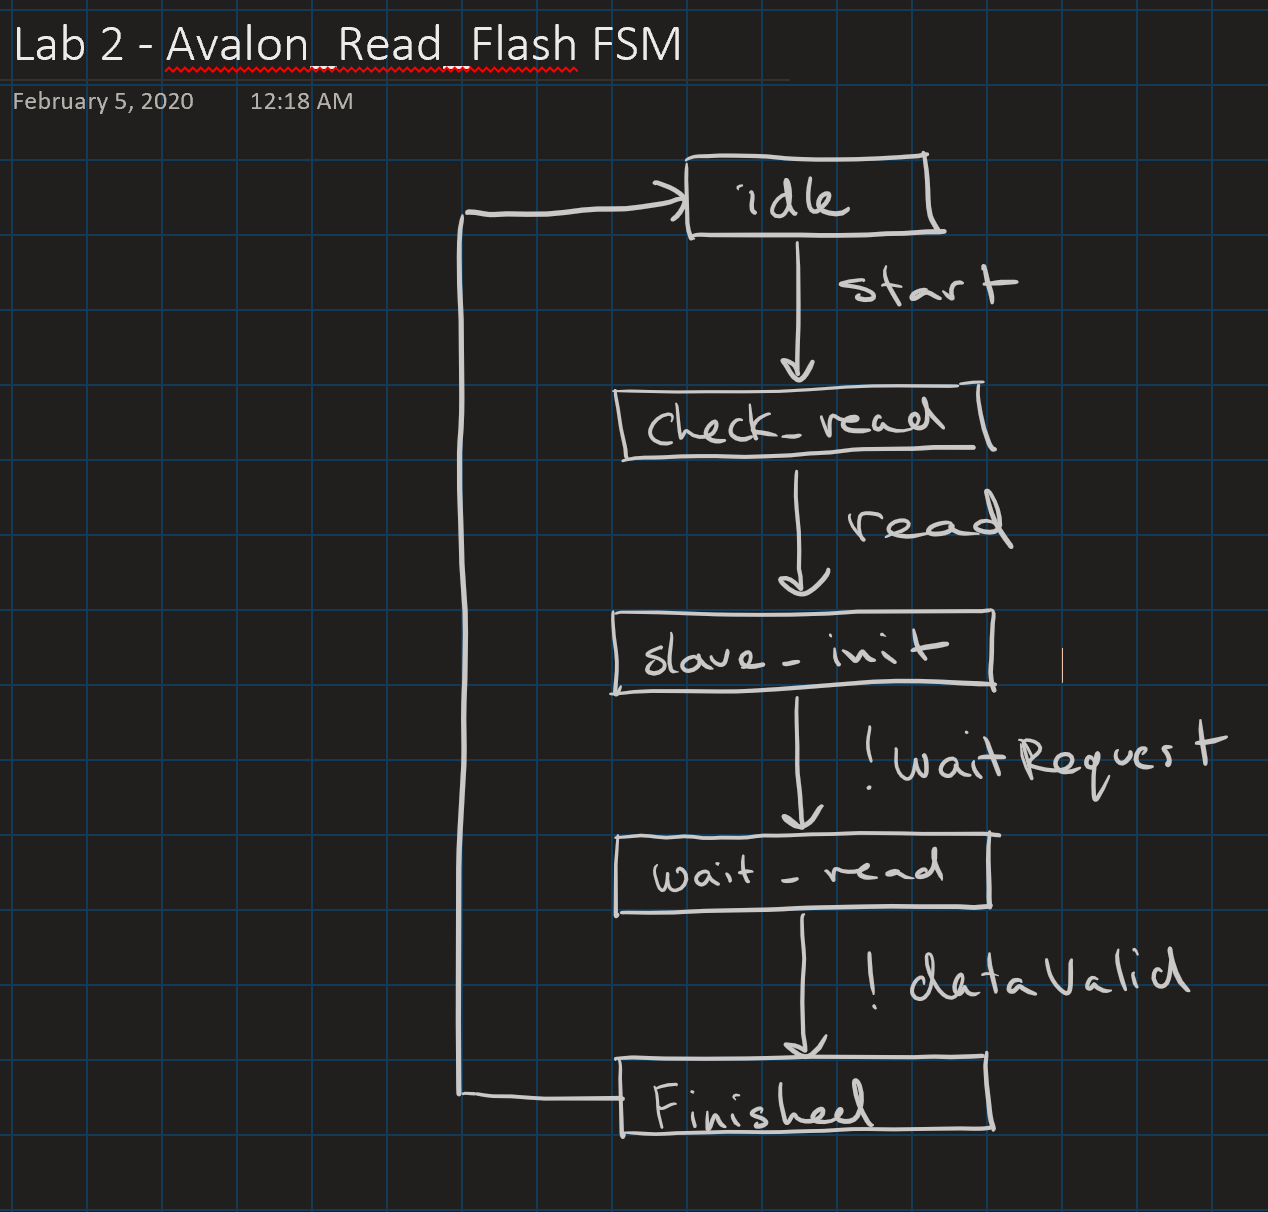 Lab 2 - Avalon_Read_Flash FSM
February 5, 2020 12:18 AM
idle
start
check_read
read
slave_init
!waitRequest
wait_read
!dataValid
Finished